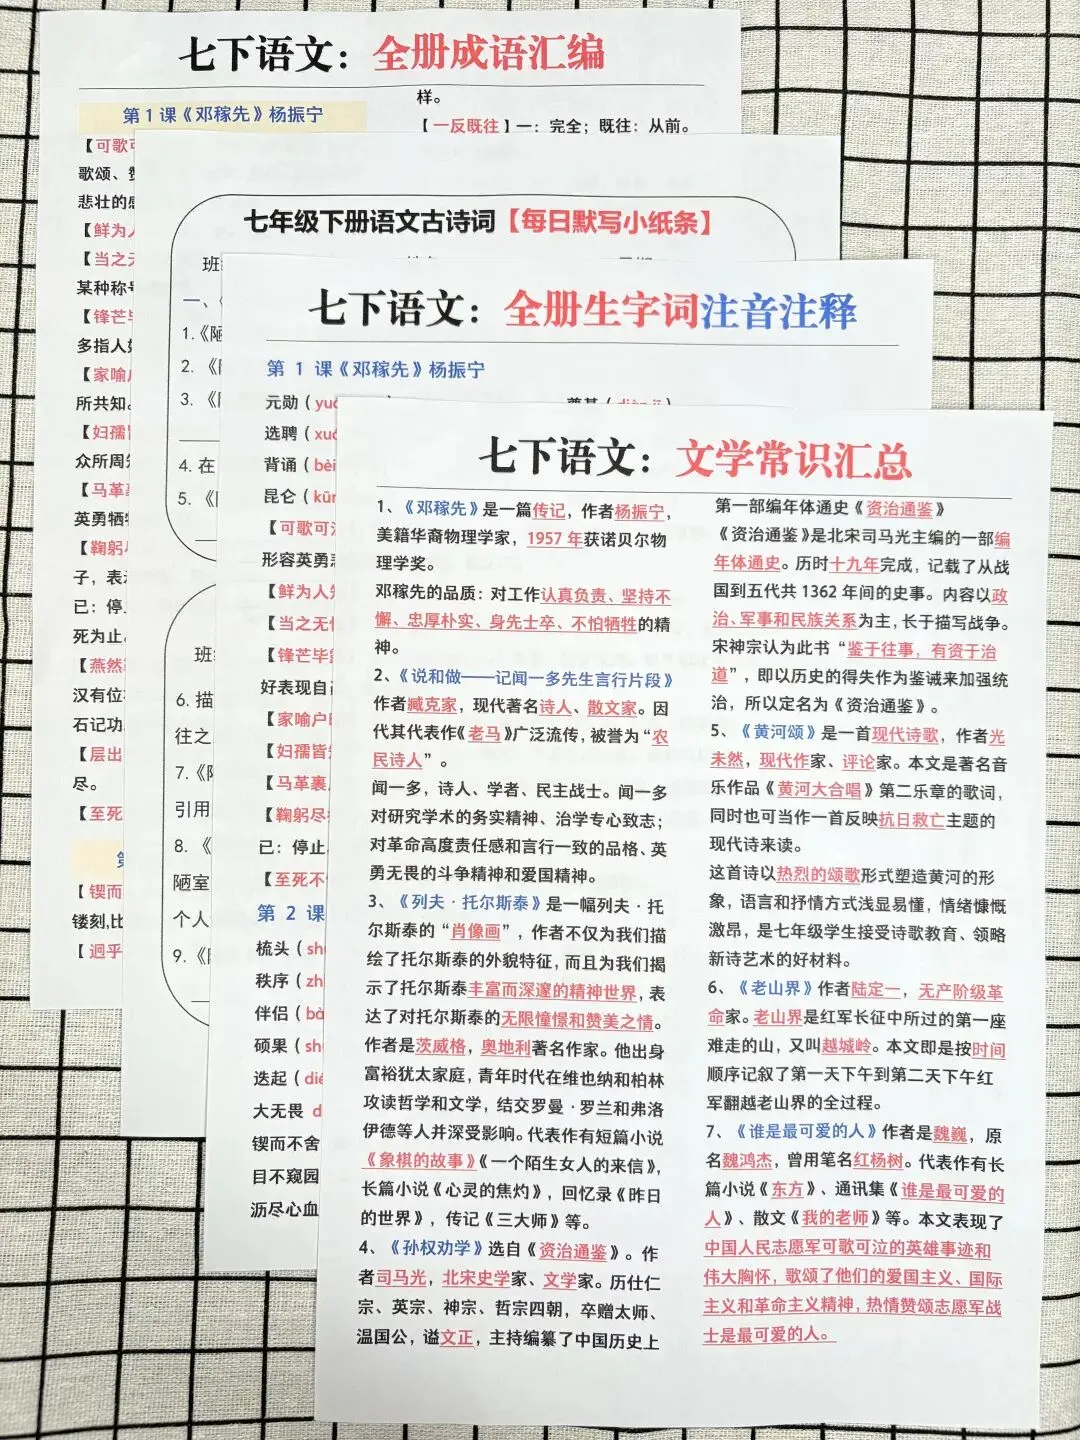 七下语文：全册成语汇编
第1课《邓稼先》杨振宁
【可歌
歌颂、
悲壮的
【鲜为人
【当之
某种称号
【锋芒
多指人
【家喻
所共知。
【妇孺
众所周知
【马革
英勇牺牲
【鞠躬
子，表
已：停
死为止。
【燕然
汉有位
石记功
【层出
尽。
【至死
第
【锲而
镂刻,比
【迥乎
样。
【一反既往】一：完全；既往：从前。
七年级下册语文古诗词【每日默写小纸条】
班
一、
1.《陋
2.《
3.《
4. 在
5.《
班
6. 描
往之
7.《
引用
8.《
陋室
个人
9.《
七下语文：全册生字词注音注释
第 1 课《邓稼先》杨振宁
元勋（yu
选聘（
背诵（bèi
昆仑（kūn
【可歌可
形容英勇悲
【鲜为人知
【当之无
【锋芒毕
好表现自己
【家喻户
【妇孺皆
【马革裹
【鞠躬尽
已：停止
【至死不
第 2 课
梳头（sh
秩序（zh
伴侣（bà
硕果（sh
迭起（dié
大无畏 d
锲而不舍
目不窥园
沥尽心血
七下语文：文学常识汇总
1、《邓稼先》是一篇传记，作者杨振宁，
美籍华裔物理学家，1957 年获诺贝尔物
理学奖。
邓稼先的品质：对工作认真负责、坚持不
懈、忠厚朴实、身先士卒、不怕牺牲的精
神。
2、《说和做——记闻一多先生言行片段》
作者臧克家，现代著名诗人、散文家。因
代其代表作《老马》广泛流传，被誉为“农
民诗人”。
闻一多，诗人、学者、民主战士。闻一多
对研究学术的务实精神、治学专心致志；
对革命高度责任感和言行一致的品格、英
勇无畏的斗争精神和爱国精神。
3、《列夫·托尔斯泰》是一幅列夫·托
尔斯泰的“肖像画”，作者不仅为我们描
绘了托尔斯泰的外貌特征，而且为我们揭
示了托尔斯泰丰富而深邃的精神世界，表
达了对托尔斯泰的无限憧憬和赞美之情。
作者是茨威格，奥地利著名作家。他出身
富裕犹太家庭，青年时代在维也纳和柏林
攻读哲学和文学，结交罗曼·罗兰和弗洛
伊德等人并深受影响。代表作有短篇小说
《象棋的故事》《一个陌生女人的来信》，
长篇小说《心灵的焦灼》，回忆录《昨日
的世界》，传记《三大师》等。
4、《孙权劝学》选自《资治通鉴》。作
者司马光，北宋史学家、文学家。历仕仁
宗、英宗、神宗、哲宗四朝，卒赠太师、
温国公，谥文正，主持编纂了中国历史上
第一部编年体通史《资治通鉴》
《资治通鉴》是北宋司马光主编的一部编
年体通史。历时十九年完成，记载了从战
国到五代共 1362 年间的史事。内容以政
治、军事和民族关系为主，长于描写战争。
宋神宗认为此书“鉴于往事，有资于治
道”，即以历史的得失作为鉴诫来加强统
治，所以定名为《资治通鉴》。
5、《黄河颂》是一首现代诗歌，作者光
未然，现代作家、评论家。本文是著名音
乐作品《黄河大合唱》第二乐章的歌词，
同时也可当作一首反映抗日救亡主题的
现代诗来读。
这首诗以热烈的颂歌形式塑造黄河的形
象，语言和抒情方式浅显易懂，情绪慷慨
激昂，是七年级学生接受诗歌教育、领略
新诗艺术的好材料。
6、《老山界》作者陆定一，无产阶级革
命家。老山界是红军长征中所过的第一座
难走的山，又叫越城岭。本文即是按时间
顺序记叙了第一天下午到第二天下午红
军翻越老山界的全过程。
7、《谁是最可爱的人》作者是魏巍，原
名魏鸿杰，曾用笔名红杨树。代表作有长
篇小说《东方》、通讯集《谁是最可爱的
人》、散文《我的老师》等。本文表现了
中国人民志愿军可歌可泣的英雄事迹和
伟大胸怀，歌颂了他们的爱国主义、国际
主义和革命主义精神，热情赞颂志愿军战
士是最可爱的人。